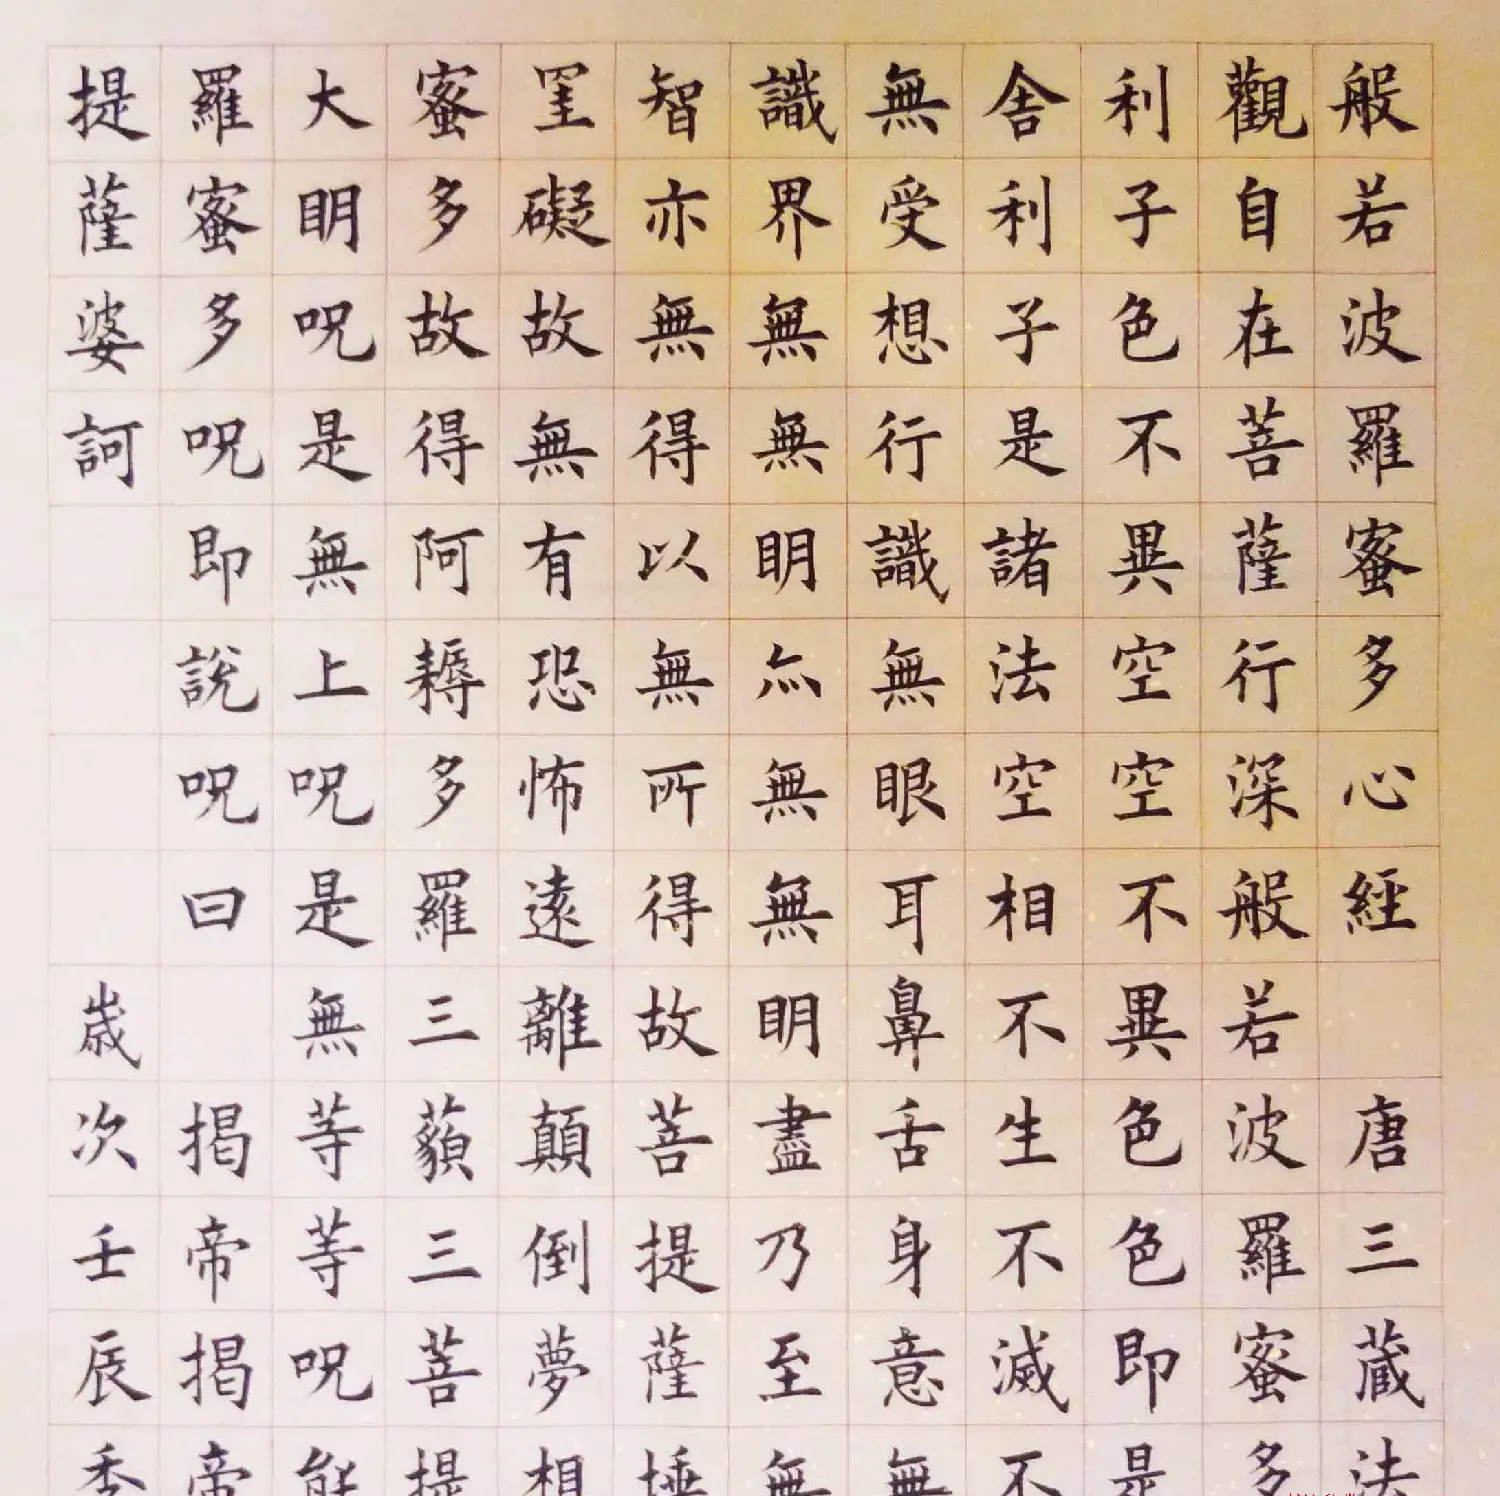 般若波羅蜜多心經 唐三藏法
觀自在菩薩行深般若波羅蜜多
利子色不異空空不異色色即是
舍利子是諸法空相不生不滅不
無受想行識無眼耳鼻舌身意無
識界無無明亦無無明盡乃至無
智亦無得以無所得故菩提薩埵
罣礙故無有恐怖遠離顛倒夢想
蜜多故得阿耨多羅三藐三菩提
大明呪是無上呪是無等等呪能
羅蜜多呪即說呪曰 揭帝揭帝
提薩婆訶 歲次壬辰